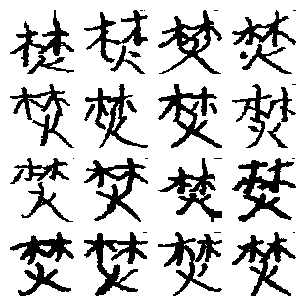 焚焚焚焚
焚焚焚焚
焚焚焚焚
焚焚焚焚